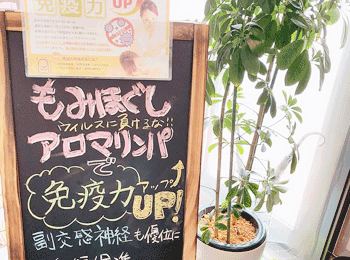 免疫力
UP
もみほぐし
ウイルスに負けるな!!
アロマリンパ
で
免疫力アップ
UP!
副交感神経も優位に